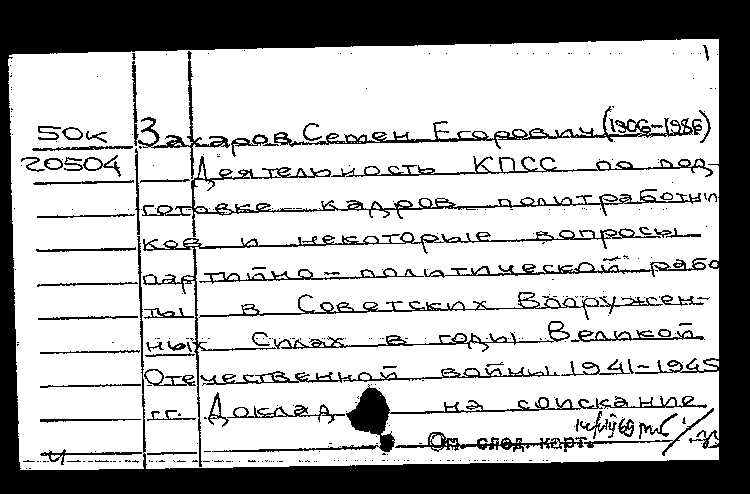 50к Захаров Семен Егорович (1906-1986)
20504 Деятельность КПСС по под-
готовке кадров политработни
ков и некоторые вопросы
партийно-политической рабо
ты в Советских Вооружен-
ных Силах в годы Великой
Отечественной войны 1941-1945
гг. Доклад на соискание
См. след. карт.